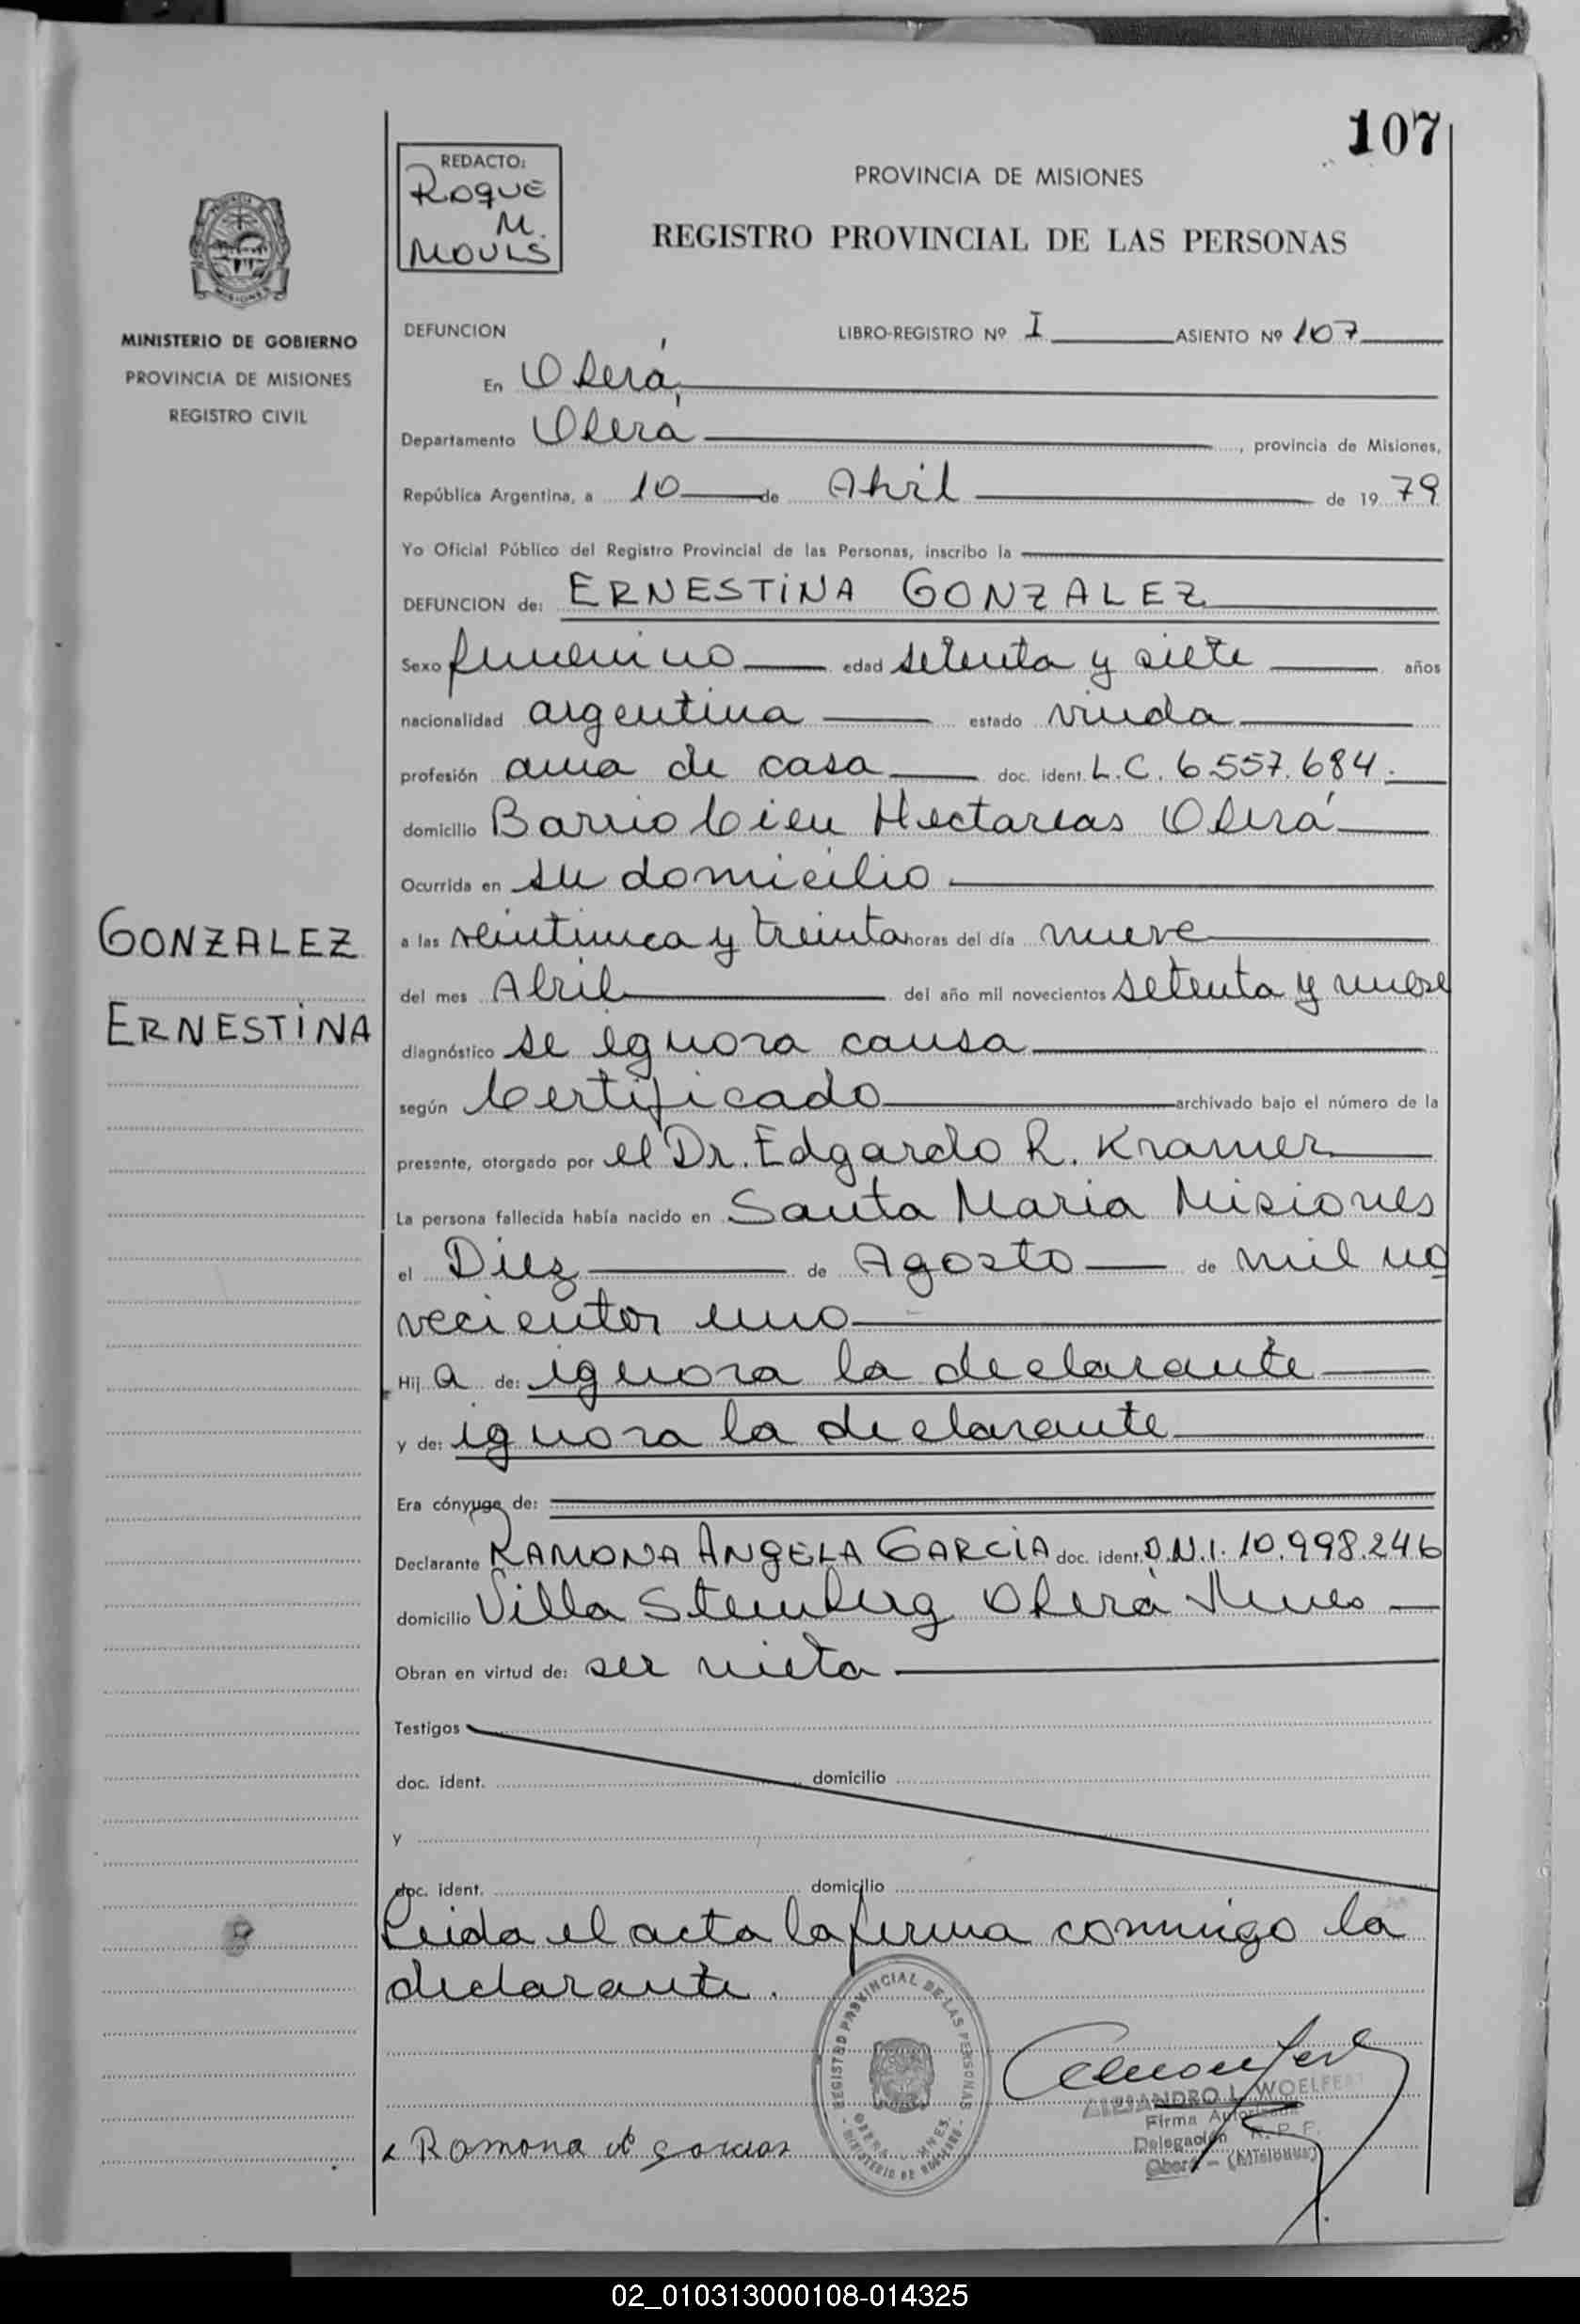 107
REDACTO:
ROQUE
M.
MOULS
PROVINCIA DE MISIONES
REGISTRO PROVINCIAL DE LAS PERSONAS
PROVINCIA
MISIONES
MINISTERIO DE GOBIERNO
PROVINCIA DE MISIONES
REGISTRO CIVIL
DEFUNCION LIBRO-REGISTRO Nº I ASIENTO Nº 107
En Oberá,
Departamento Oberá, provincia de Misiones,
República Argentina, a 10 de Abril de 1979
Yo Oficial Público del Registro Provincial de las Personas, inscribo la
DEFUNCION de: ERNESTINA GONZALEZ
Sexo femenino edad setenta y siete años
nacionalidad argentina estado viuda
profesión ama de casa doc. ident. L.C. 6.557.684.
domicilio Barrio Cien Hectareas Oberá
Ocurrida en su domicilio
GONZALEZ
ERNESTINA
a las y treinta horas del día nueve
del mes Abril del año mil novecientos setenta y nueve
diagnóstico se ignora causa
según Certificado archivado bajo el número de la
presente, otorgado por el Dr. Edgardo R. Kramer
La persona fallecida había nacido en Santa Maria Misiones
el Diez de Agosto de mil no
vecientos uno
Hij a de: ignora la declarante
y de: ignora la declarante
Era cónyuge de:
Declarante RAMONA ANGELA GARCIA doc. ident. D.N.I. 10.998.246
domicilio Villa Stemberg Oberá Mnes
Obran en virtud de: ser nieta
Testigos
doc. ident. domicilio
y
doc. ident. domicilio
Leida el acta la firma conmigo la
declarante.
REGISTRO PROVINCIAL DE LAS PERSONAS
OBERA - MNES.
- MINISTERIO DE GOBIERNO -
ALEJANDRO L. WOELFERT
Firma Autorizada
Delegación R. P. P.
Oberá - (Misiones)
Ramona A Garcia
02_010313000108-014325